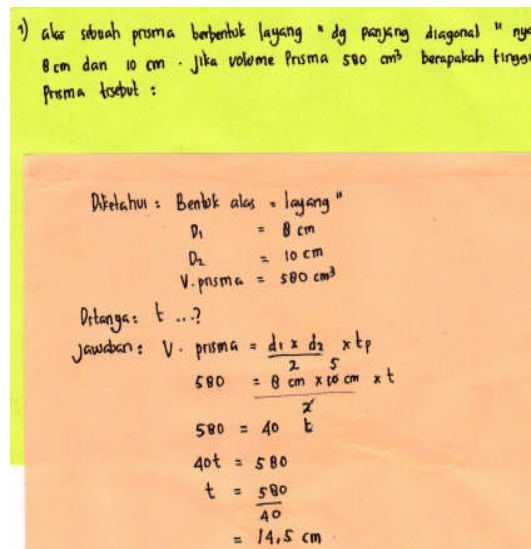 1) alas sebuah prisma berbentuk layang " dg panjang diagonal " nya
8 cm dan 10 cm . Jika volume Prisma 580 cm³ berapakah tinggi
Prisma trsebut :
Diketahui : Bentuk alas = layang "
D₁ = 8 cm
D₂ = 10 cm
V. prisma = 580 cm³
Ditanya : t ...?
Jawaban : V. prisma = d₁ x d₂ / 2 x tp
5
580 = 8 cm x 10 cm / 2 x t
580 = 40 t
40t = 580
t = 580 / 40
= 14,5 cm